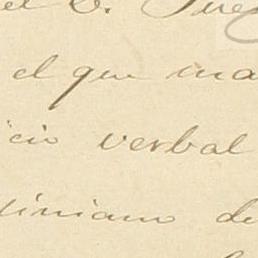 el D.
el que ma
cio verbal
iniano de